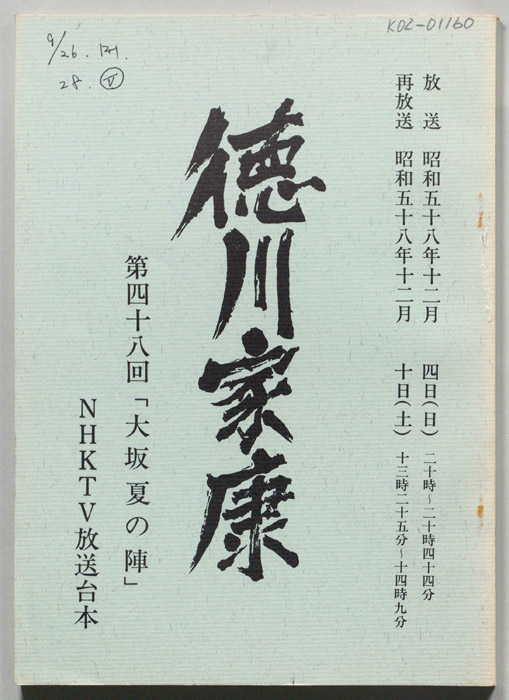 K02-01160
9/26. PM.
28. Ⅴ
放送 昭和五十八年十二月 四日(日) 二十時～二十時四十四分
再放送 昭和五十八年十二月 十日(土) 十三時二十五分～十四時九分
徳川家康
第四十八回「大坂夏の陣」
NHKTV放送台本